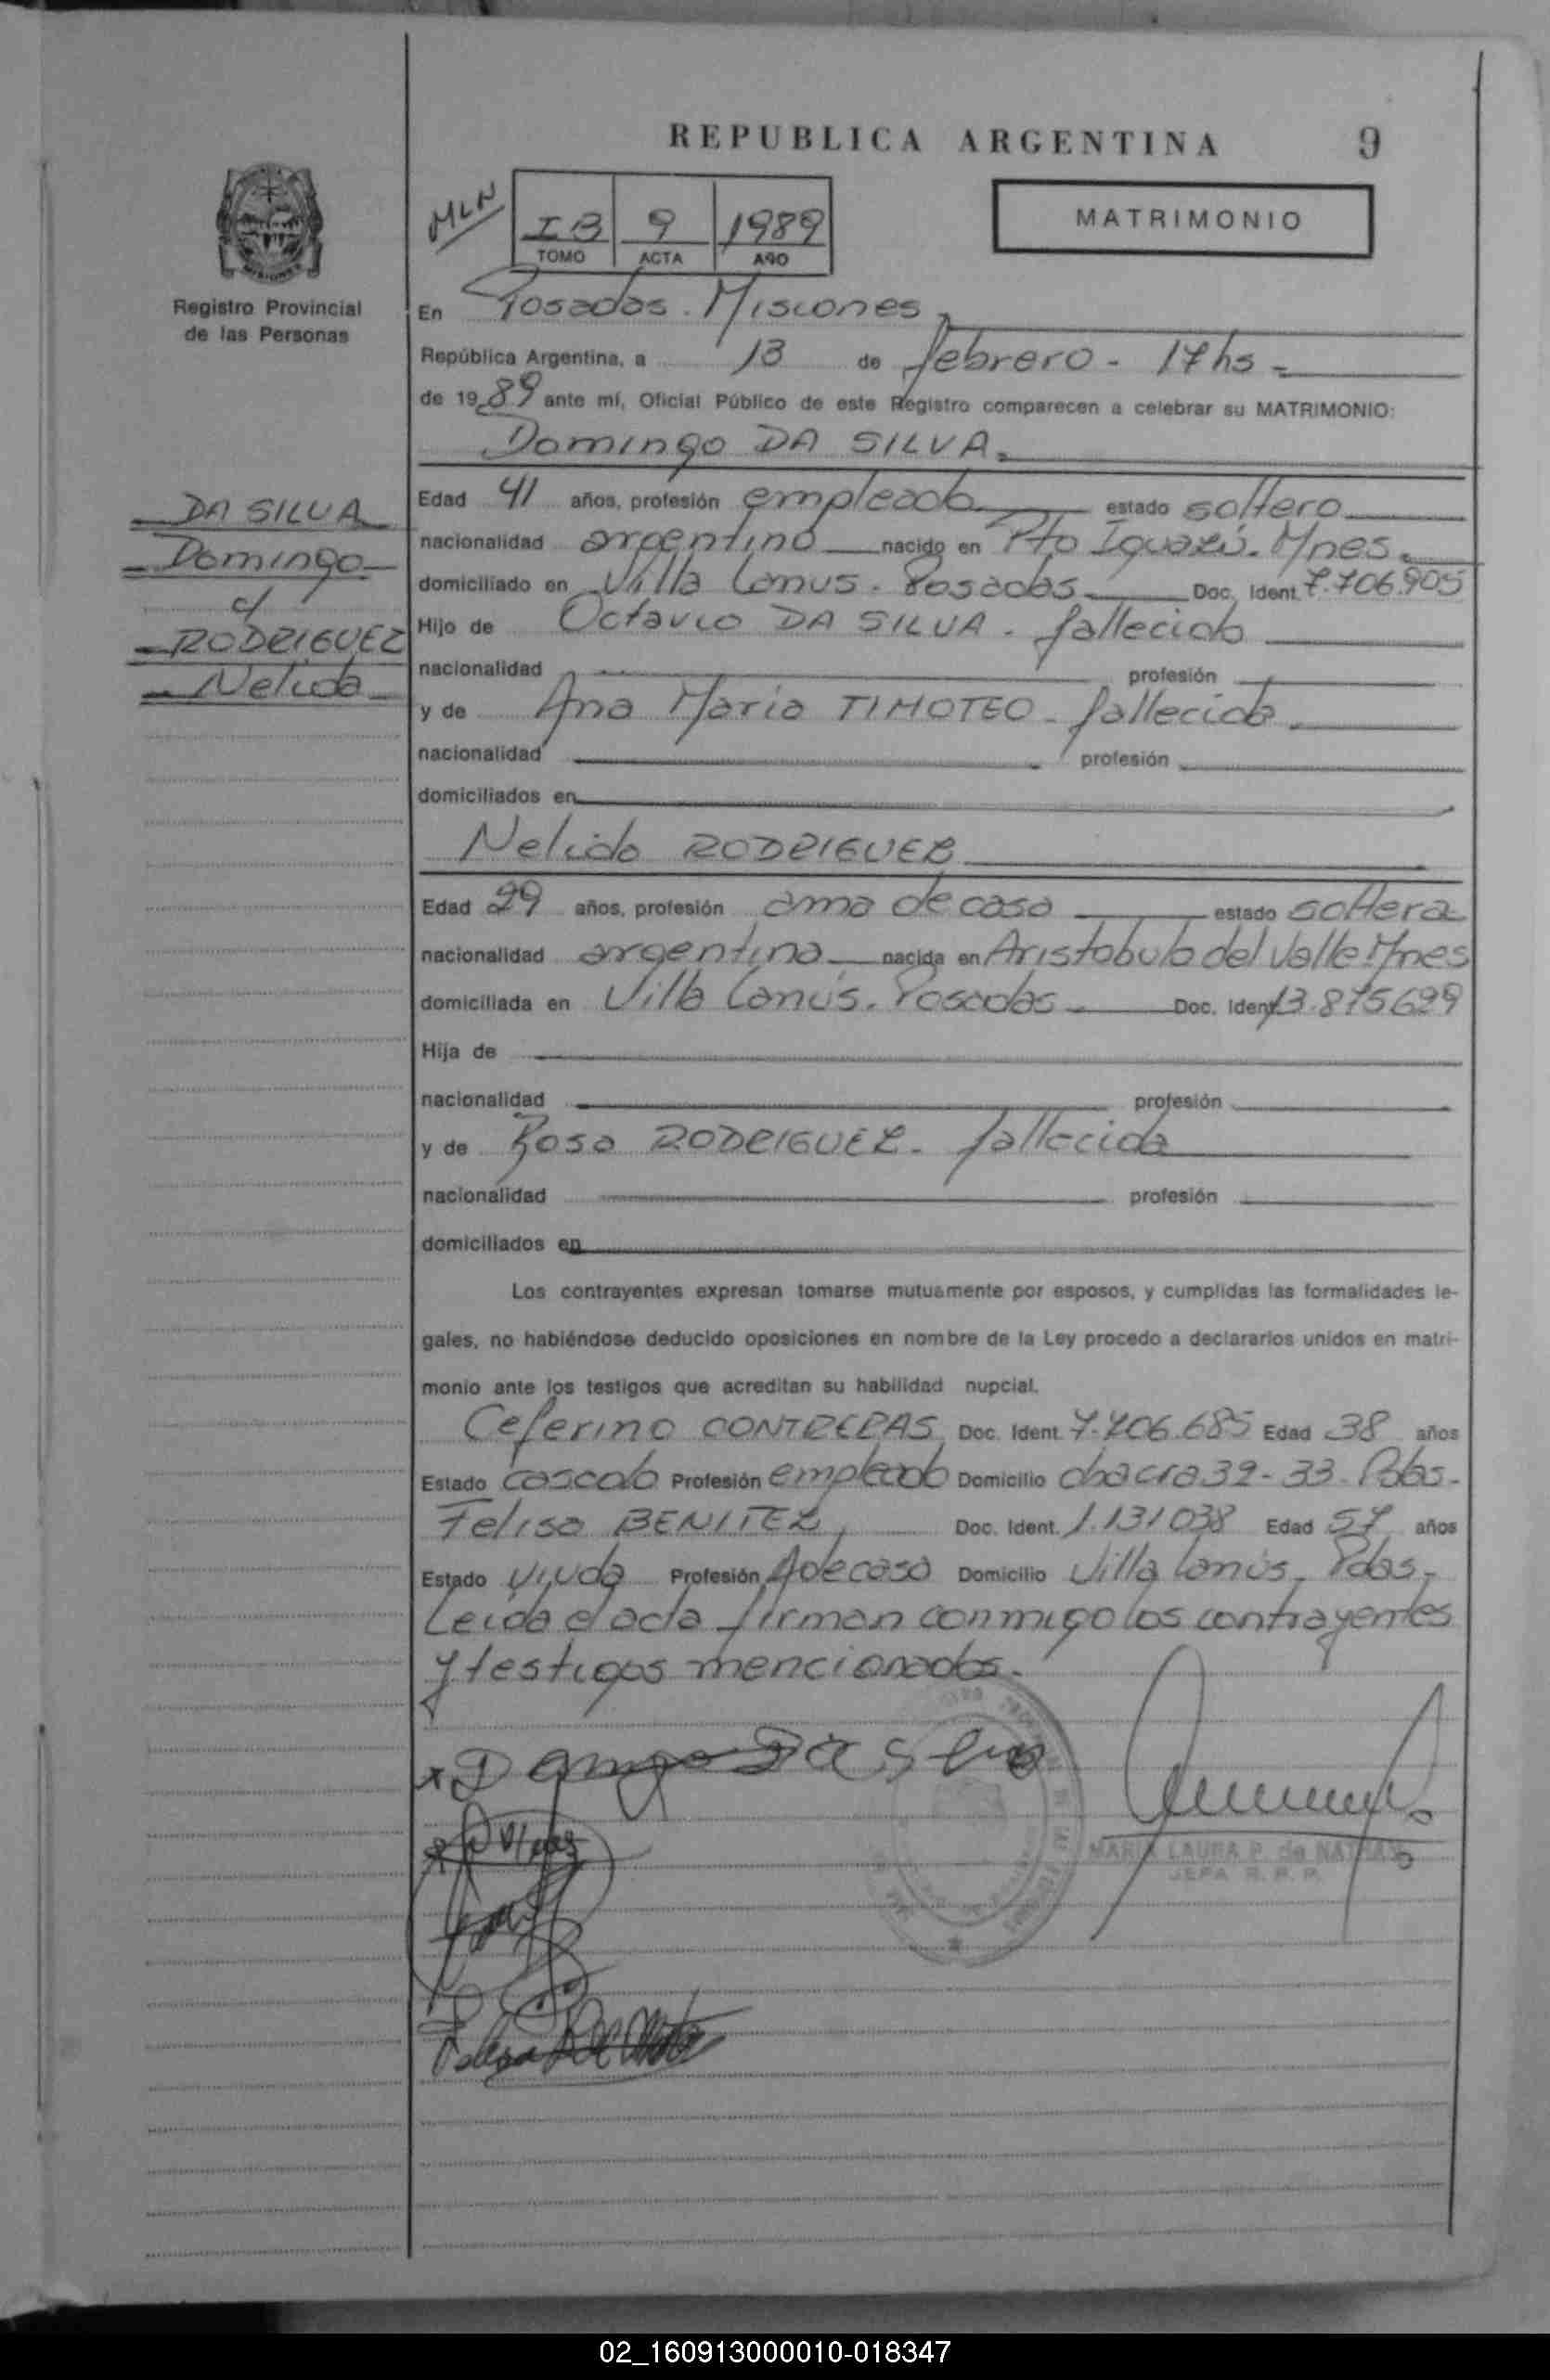 REPUBLICA ARGENTINA 9
MISIONES
Registro Provincial
de las Personas
MLN
IB 9 1989
TOMO ACTA AÑO
MATRIMONIO
En Posadas. Misiones
República Argentina, a 13 de febrero - 17 hs
de 1989 ante mí, Oficial Público de este Registro comparecen a celebrar su MATRIMONIO:
Domingo DA SILVA
DA SILVA
Domingo
c/
RODRIGUEZ
Nelida
Edad 41 años, profesión empleado estado soltero
nacionalidad argentino nacido en Pto Iguazú. Mnes.
domiciliado en Villa Lanus. Posadas Doc. Ident. 7.706.905
Hijo de Octavio DA SILVA. fallecido
nacionalidad profesión
y de Ana Maria TIMOTEO - fallecida
nacionalidad profesión
domiciliados en
Nelida RODRIGUEZ
Edad 29 años, profesión ama de casa estado soltera
nacionalidad argentina nacida en Aristobulo del Valle Mnes
domiciliada en Villa Lanús. Posadas Doc. Ident. 13.875699
Hija de
nacionalidad profesión
y de Rosa RODRIGUEZ - fallecida
nacionalidad profesión
domiciliados en
Los contrayentes expresan tomarse mutuamente por esposos, y cumplidas las formalidades le-
gales, no habiéndose deducido oposiciones en nombre de la Ley procedo a declararlos unidos en matri-
monio ante los testigos que acreditan su habilidad nupcial.
Ceferino CONTRERAS Doc. Ident. 7.706.685 Edad 38 años
Estado casado Profesión empleado Domicilio chacra 32-33. Pdas.
Felisa BENITEZ, Doc. Ident. 1.131038 Edad 57 años
Estado viuda Profesión A de casa Domicilio Villa Lanús. Pdas.
Leida el acta firman conmigo los contrayentes
y testigos mencionados.
x Domingo Da Silva
MARIA LAURA P. de NATHAN
JEFA R. P. P.
02_160913000010-018347